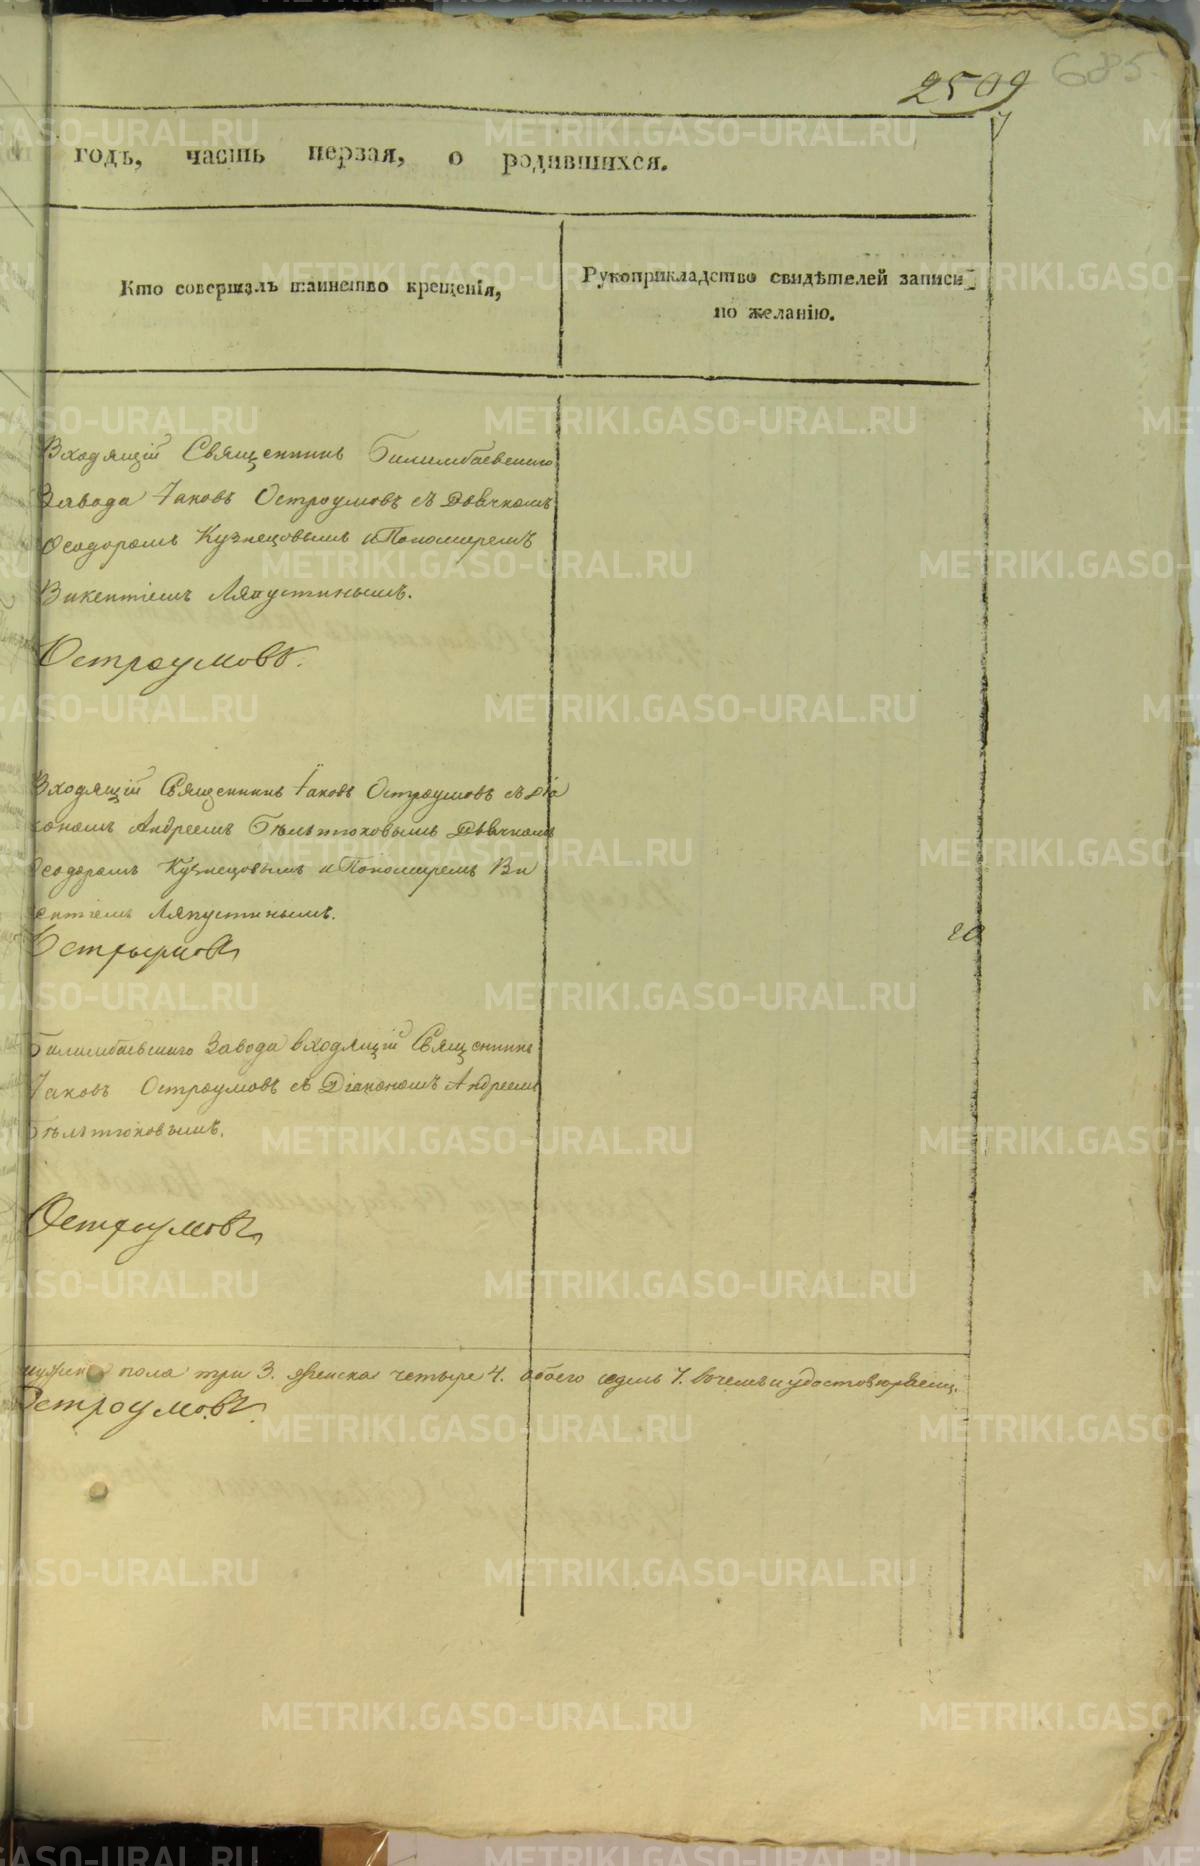 2509 685
7
годъ, часть первая, о родившихся.
Кто совершалъ таинство крещенія,
Рукоприкладство свидѣтелей записи
по желанію.
Входящій Священникъ Билимбаевскаго
Завода Іаковъ Остроумовъ съ Дьячкомъ
Ѳеодоромъ Кузнецовымъ и Пономаремъ
Викентіемъ Ляпустинымъ.
Остроумовъ.
Входящій Священникъ Іаковъ Остроумовъ съ Діа
кономъ Андреемъ Бѣльтюковымъ Дьячкомъ
Ѳеодоромъ Кузнецовымъ и Пономаремъ Ви
кентіемъ Ляпустинымъ.
Остроумовъ
20
Билимбаевскаго Завода входящій Священникъ
Іаковъ Остроумовъ съ Діакономъ Андреемъ
Бѣльтюковымъ.
Остроумовъ
мужска пола три 3. женска четыре 4. обоего седмь 7. в чемъ и удостовѣряемъ.
Остроумовъ.
METRIKI.GASO-URAL.RU